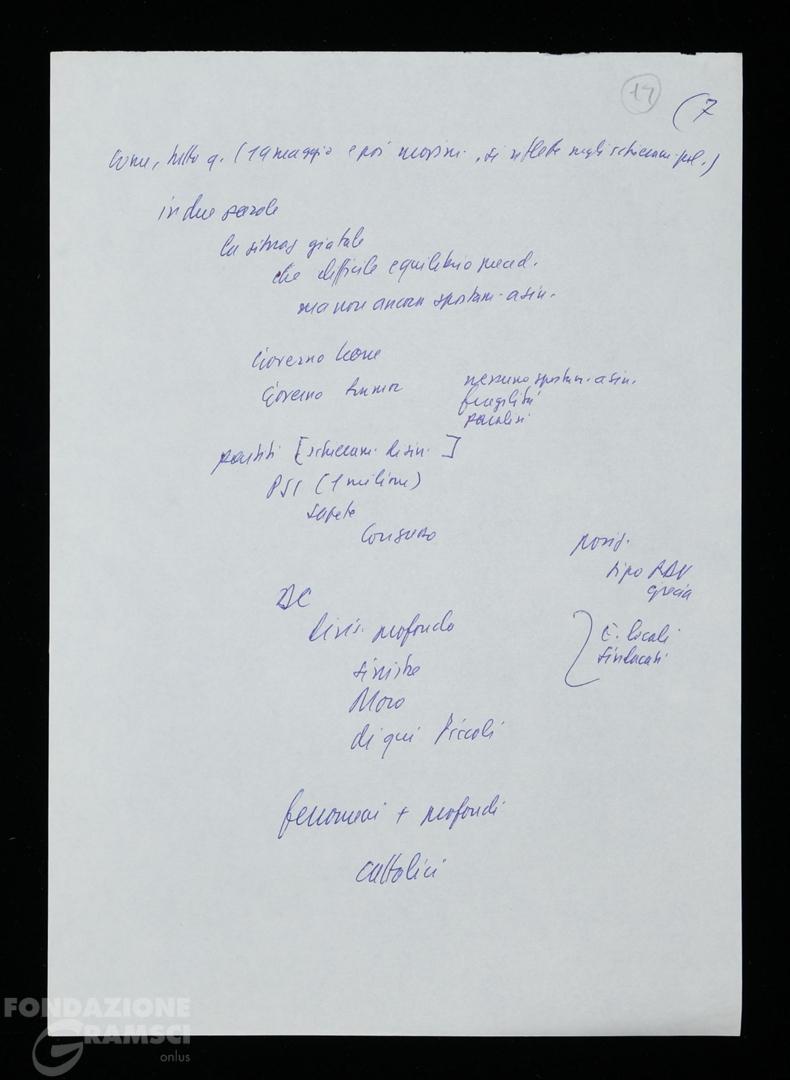 14
(7
Come, tutto q. (19 maggio e poi movim. , si riflette negli schieram. pol.)
in due parole
la situaz
che difficile equilibrio preced.
ma non ancora spostam. a sin.
Governo Leone
Governo Rumor
nessuno spostam. a sin.
fragilità
paralisi
partiti [schieram. di sin. ]
PSI (1 milione)
sapete
Congresso
posiz.
tipo
Grecia
DC
divis. profonda
E. locali
sindacati
sinistre
Moro
di qui Piccoli
fenomeni + profondi
cattolici
FONDAZIONE
GRAMSCI
onlus